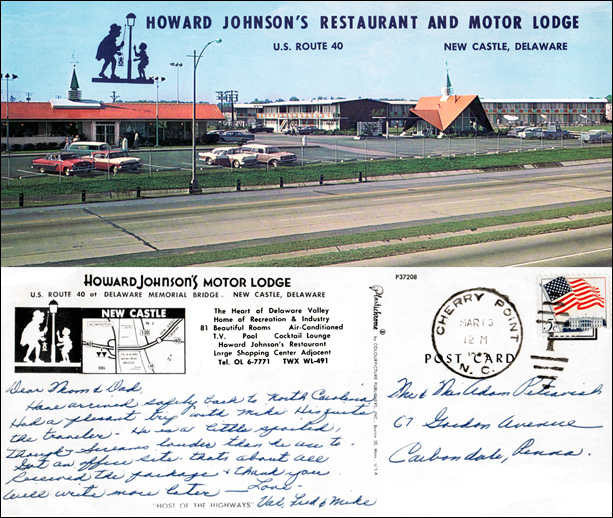 HOWARD JOHNSON'S RESTAURANT AND MOTOR LODGE
U.S. ROUTE 40 NEW CASTLE, DELAWARE
HOWARD JOHNSON'S MOTOR LODGE
U.S. ROUTE 40 at DELAWARE MEMORIAL BRIDGE. NEW CASTLE, DELAWARE
NEW CASTLE
The Heart of Delaware Valley
Home of Recreation & Industry
81 Beautiful Rooms Air-Conditioned
T.V. Pool Cocktail Lounge
Howard Johnson's Restaurant
Large Shopping Center Adjacent
Tel. OL 6-7771 TWX WL-491
Dear Mom & Dad,
Have arrived safely back to North Carolina
Had a pleasant trip with Mike. He's quite
the traveler - He is a little spoiled,
though - Screams louder than he use to.
Got an office site. that's about all
Received the package & thank you
Will write more later - Love
Val, Fred & Mike
"HOST OF THE HIGHWAYS"
Plastichrome ®
by COLOURPICTURE PUBLISHERS, INC., Boston 30, Mass., U.S.A.
P37208
CHERRY POINT
MAR 13
12 M
N.C.
POST CARD
Mr & Mrs Adam
67 Gordon Avenue
Carbondale, Penna.